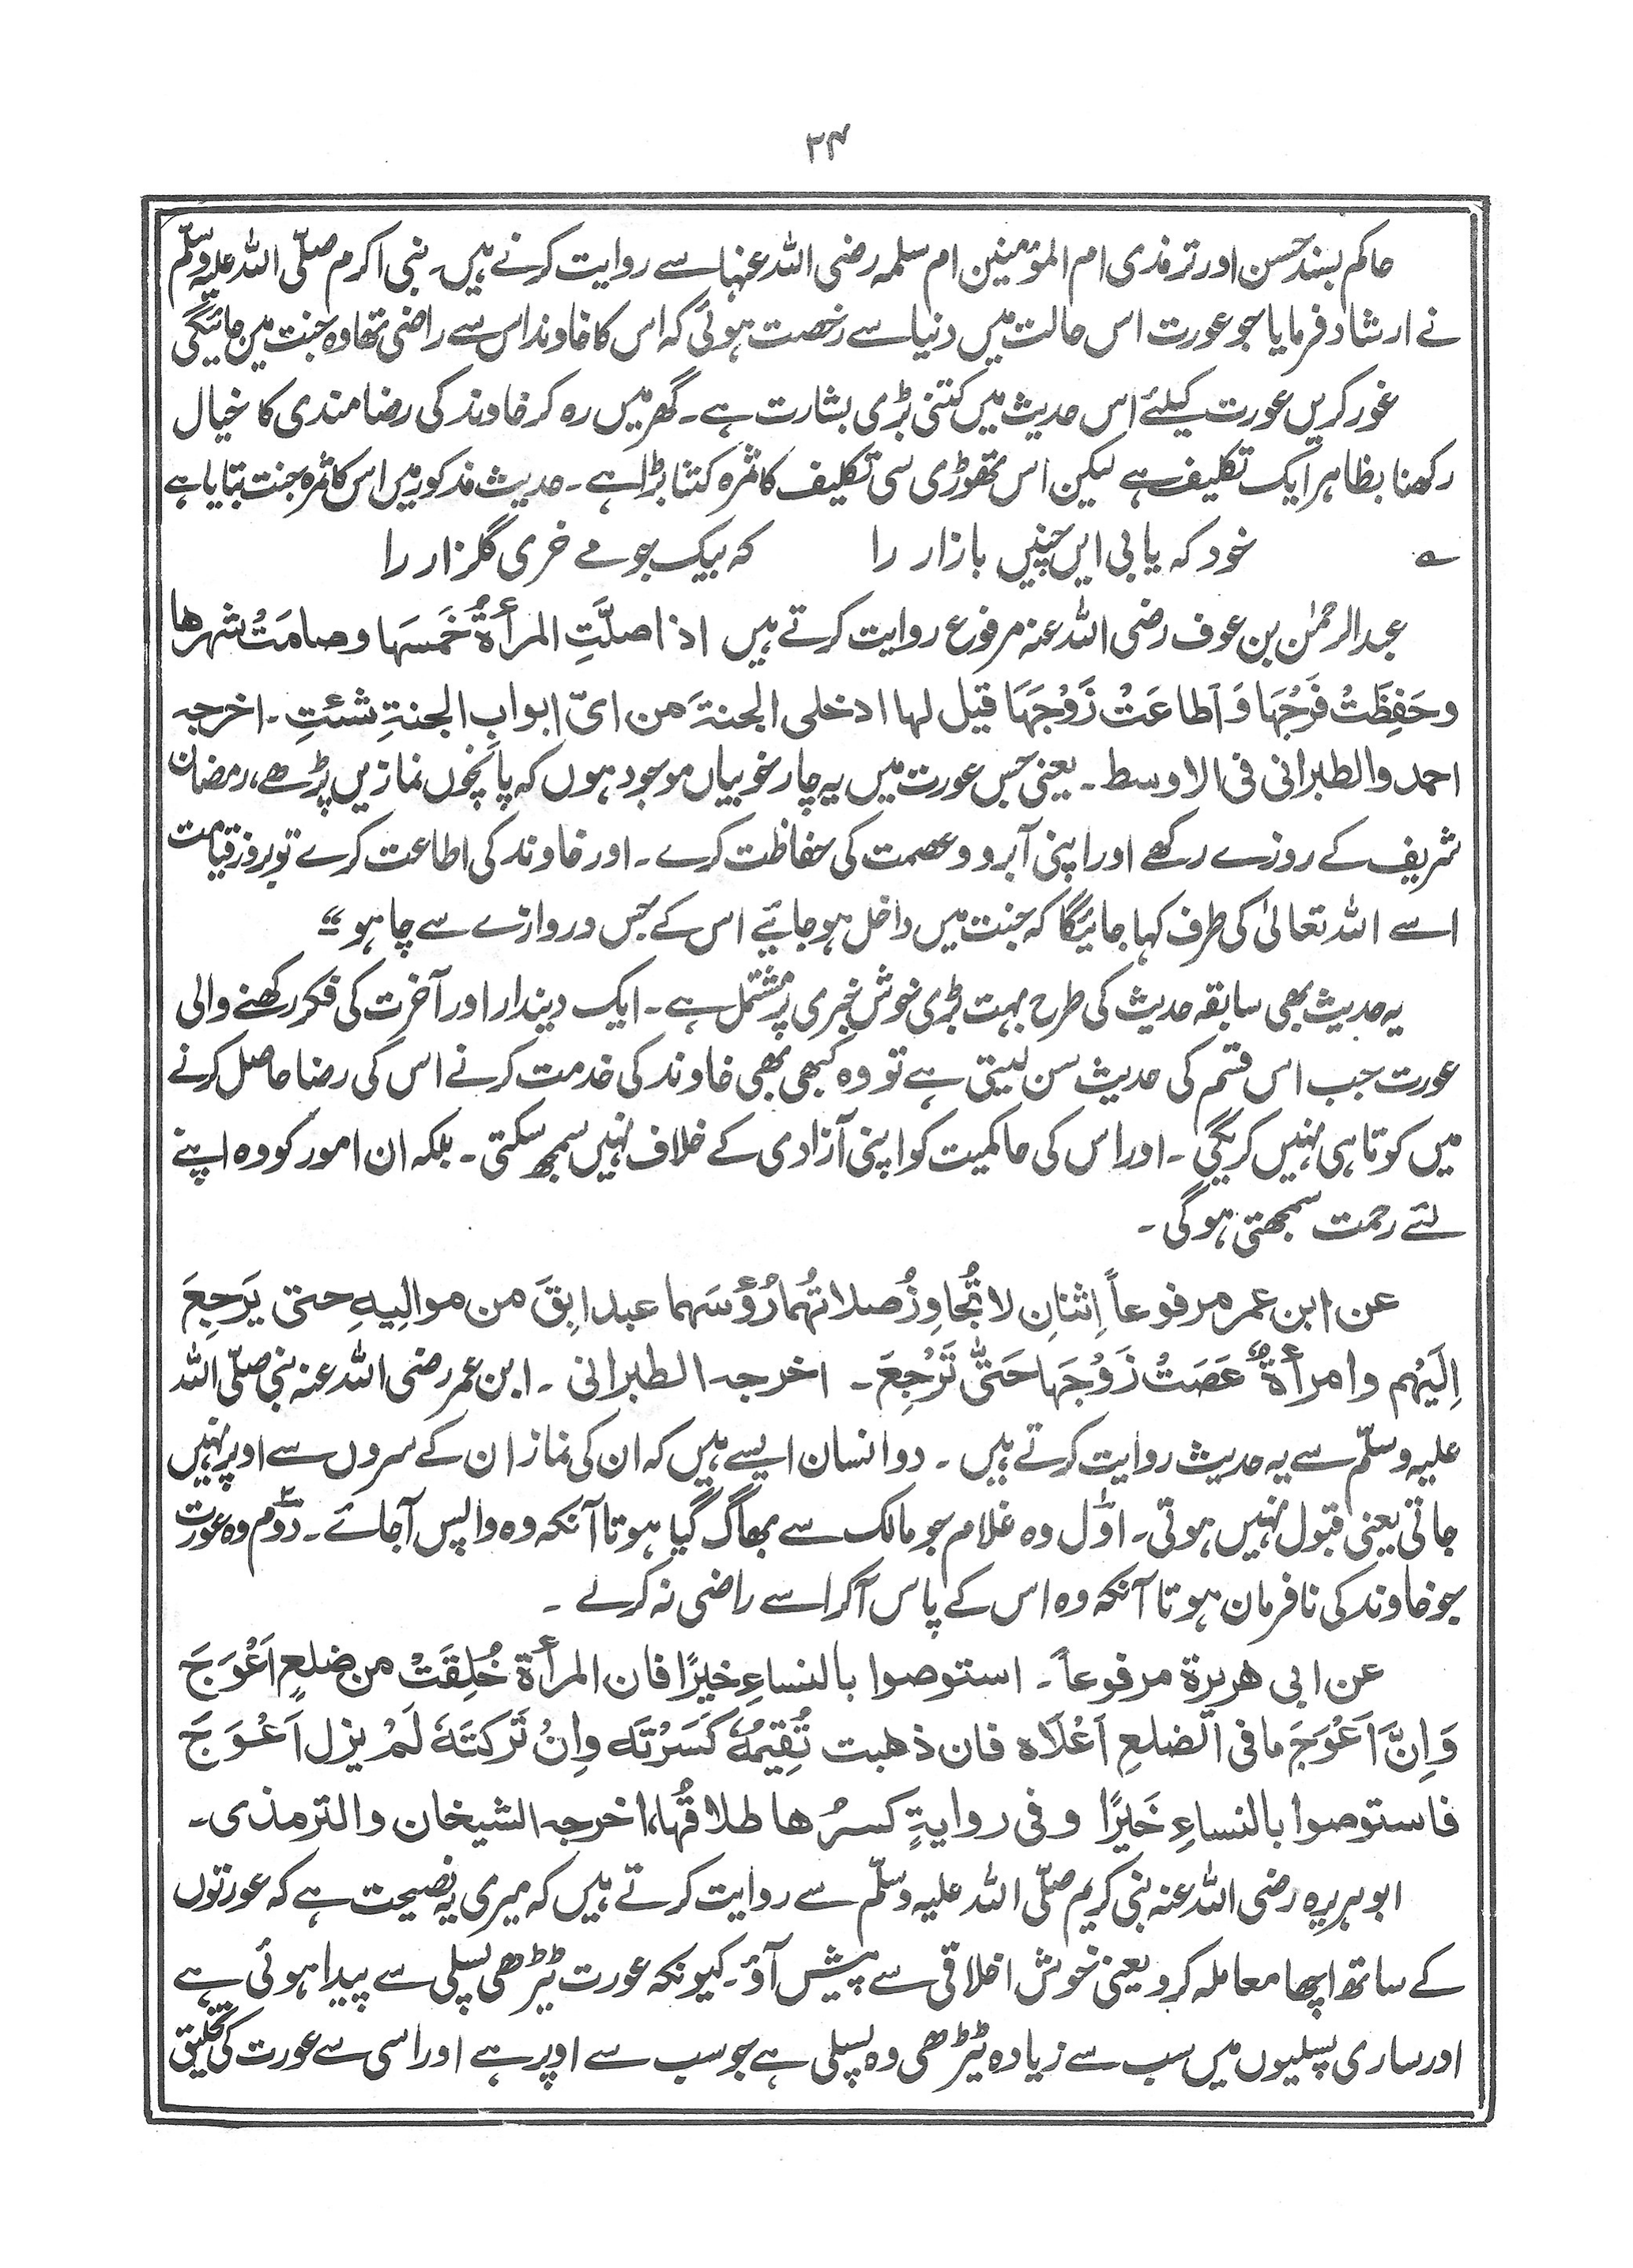 ۲۴
حاکم بسند حسن اور ترمذی ام المؤمنین ام سلمہ رضی اللہ عنہا سے روایت کرتے ہیں۔ نبی اکرم صلّی اللہ علیہ وسلّم
نے ارشاد فرمایا جو عورت اس حالت میں دنیا سے رخصت ہوئی کہ اس کا خاوند اس سے راضی تھا وہ جنت میں جائیگی
غور کریں عورت کیلئے اس حدیث میں کتنی بڑی بشارت ہے۔ گھر میں رہ کر خاوند کی رضامندی کا خیال
رکھنا بظاہر ایک تکلیف ہے لیکن اس تھوڑی سی تکلیف کا ثمرہ کتنا بڑا ہے۔ حدیث مذکور میں اس کا ثمرہ جنت بتایا ہے
؎ خود کہ یابی ایں چنیں بازار را کہ بیک جو مے خری گلزار را
عبدالرحمٰن بن عوف رضی اللہ عنہ مرفوع روایت کرتے ہیں اذا صلَّتِ المرأةُ خَمسَها وصامَتْ شهرها
وحَفِظَتْ فَرْجَهَا وَاَطاعَتْ زَوْجَهَا قیل لها ادخلی الجنةَ من ایّ ابوابِ الجنةِ شئتِ۔ اخرجه
احمد والطبرانی فی الاوسط۔ یعنی جس عورت میں یہ چار خوبیاں موجود ہوں کہ پانچوں نمازیں پڑھے، رمضان
شریف کے روزے رکھے اور اپنی آبرو و عصمت کی حفاظت کرے۔ اور خاوند کی اطاعت کرے تو بروز قیامت
اسے اللہ تعالیٰ کی طرف کہا جائیگا کہ جنت میں داخل ہو جائیے اس کے جس دروازے سے چاہو“
یہ حدیث بھی سابقہ حدیث کی طرح بہت بڑی خوش خبری پر مشتمل ہے۔ ایک دیندار اور آخرت کی فکر رکھنے والی
عورت جب اس قسم کی حدیث سن لیتی ہے تو وہ کبھی بھی خاوند کی خدمت کرنے اس کی رضا حاصل کرنے
میں کوتاہی نہیں کریگی۔ اور اس کی حاکمیت کو اپنی آزادی کے خلاف نہیں سمجھ سکتی۔ بلکہ ان امور کو وہ اپنے
لئے رحمت سمجھتی ہوگی۔
عن ابن عمر مرفوعاً اِثنانِ لا تُجاوِزُ صلاتهُما رُؤسَهما عبد ابِقَ من موالِیهِ حتی یَرجِعَ
اِلَیْهِم وامرأةٌ عَصَتْ زَوْجَها حَتّٰی تَرْجِعَ۔ اخرجه الطبرانی۔ ابن عمر رضی اللہ عنہ نبی صلّی اللہ
علیہ وسلّم سے یہ حدیث روایت کرتے ہیں۔ دو انسان ایسے ہیں کہ ان کی نماز ان کے سروں سے اوپر نہیں
جاتی یعنی قبول نہیں ہوتی۔ اوّل وہ غلام جو مالک سے بھاگ گیا ہو تاآنکہ وہ واپس آجائے۔ دوّم وہ عورت
جو خاوند کی نافرمان ہو تاآنکہ وہ اس کے پاس آکر اسے راضی نہ کرلے۔
عن ابی هریرة مرفوعاً۔ استوصوا بالنساءِ خیرًا فان المرأة خُلِقَتْ من ضلعٍ اَعْوَجَ
وَاِنَّ اَعْوَجَ ما فی الضلعِ اَعْلَاه فان ذهبت تُقِیمُهٗ کَسَرْتَه واِنْ تَرَکتَهٗ لَمْ یزل اَعْوَجَ
فاستوصوا بالنساءِ خَیرًا وفی روایةٍ کسرُها طلاقُها، اخرجه الشیخان والترمذی۔
ابو ہریرہ رضی اللہ عنہ نبی کریم صلّی اللہ علیہ وسلّم سے روایت کرتے ہیں کہ میری یہ نصیحت ہے کہ عورتوں
کے ساتھ اچھا معاملہ کرو یعنی خوش اخلاقی سے پیش آؤ۔ کیونکہ عورت ٹیڑھی پسلی سے پیدا ہوئی ہے
اور ساری پسلیوں میں سب سے زیادہ ٹیڑھی وہ پسلی ہے جو سب سے اوپر ہے اور اسی سے عورت کی تخلیق